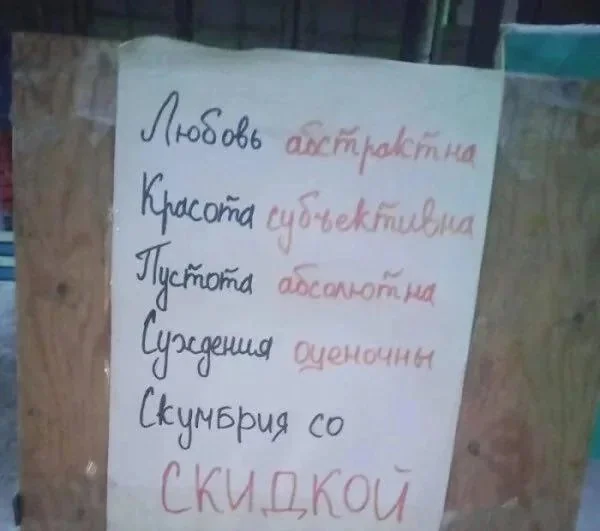 Любовь абстрактна
Красота субъективна
Пустота абсолютна
Суждения оценочны
Скумбрия со
СКИДКОЙ